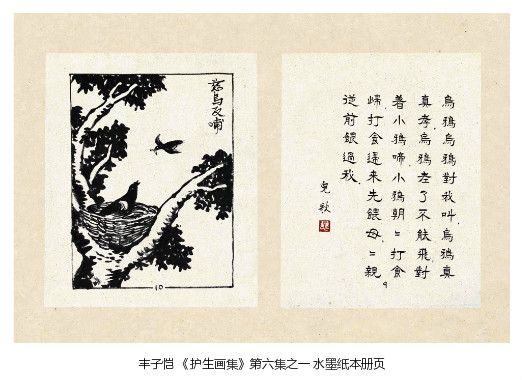 慈烏反哺
10
烏鴉烏鴉對我叫.烏鴉真
真孝.烏鴉老了不能飛.對
着小鴉啼.小鴉朝〻打食
歸.打食還來先餵母.〻親
從前餵過我.
丰子恺 《护生画集》第六集之一 水墨纸本册页